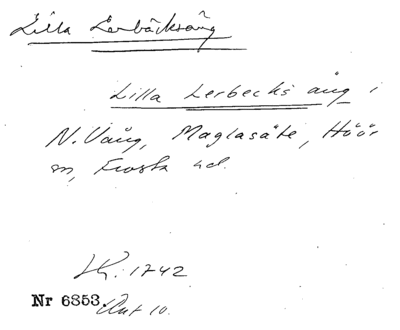 Lilla Lerbäcksäng
Lilla Lerbecks äng i
N. Vång, Maglasäte, Höör
sn, Frosta hd.
LK. 1742
Nr 6353. Akt 10.